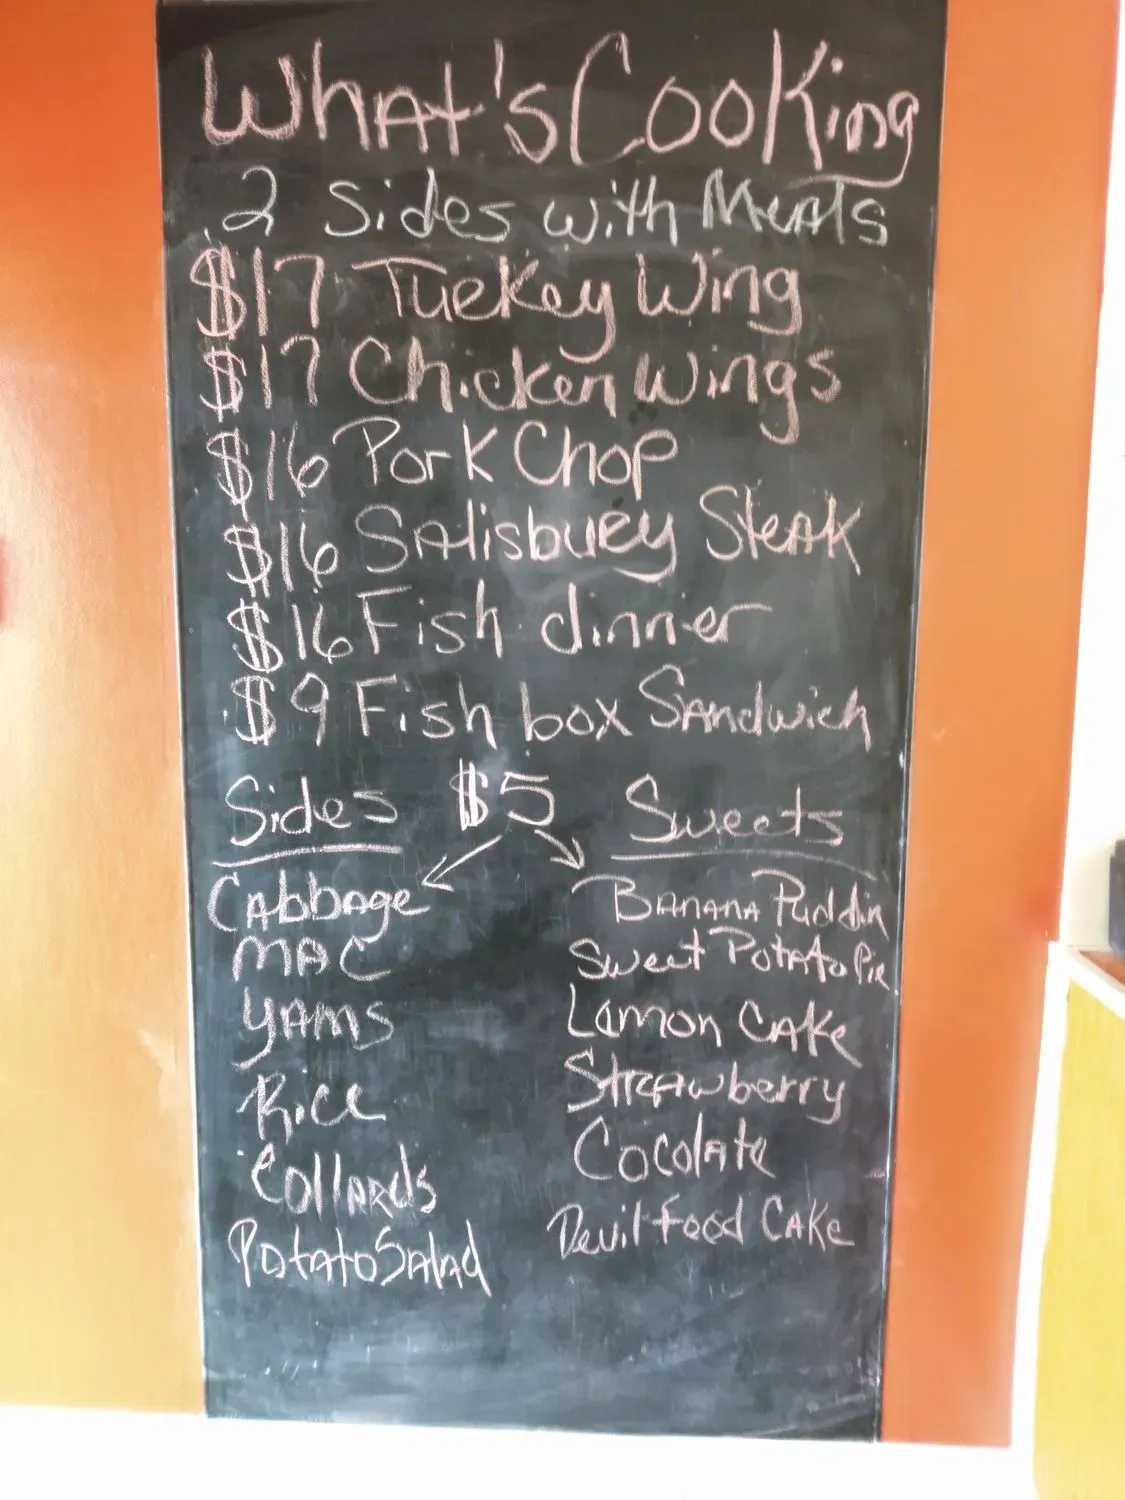 What's Cooking
2 Sides with Meats
$17 Turkey Wing
$17 Chicken Wings
$16 Pork Chop
$16 Salisbury Steak
$16 Fish dinner
$9 Fish box Sandwich
Sides $5 Sweets
Cabbage
MAC
YAMS
Rice
Collards
Potato Salad
Banana Puddin
Sweet Potato Pie
Lemon Cake
Strawberry
Cocolate
Devil Food Cake